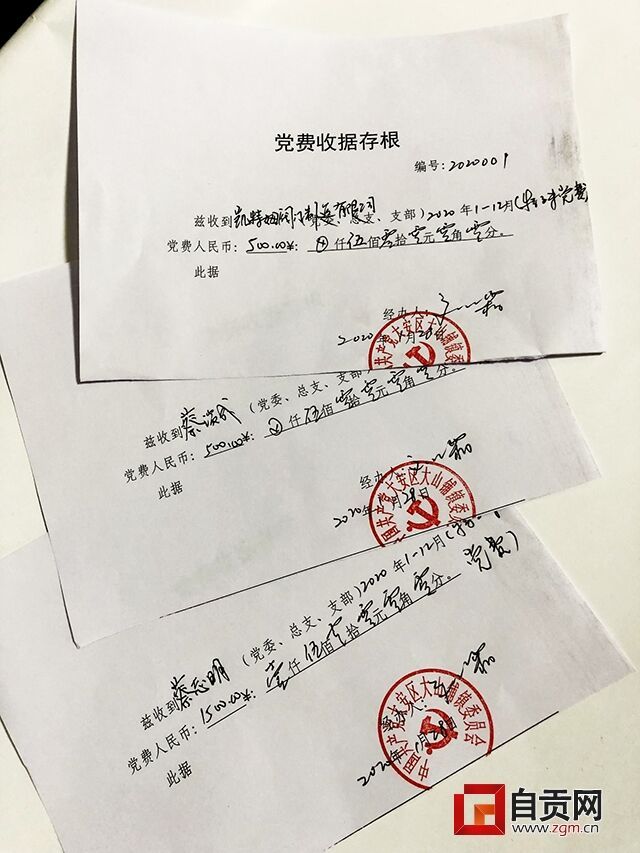 党费收据存根
编号：2020001
兹收到凯特姆阀门制造有限公司、总支、支部）2020年1-12月（特殊党费
党费人民币：500.00¥：⊗仟伍佰零拾零元零角零分。
此据
经办人：
2020年 月28日
中国共产党大安区大山铺镇委员会
兹收到蔡 成（党委、总支、支部
党费人民币：500.00¥：⊗仟伍佰零拾零元零角零分。
此据
经办人：
2020年 月28日
中国共产党大安区大山铺镇委员会
兹收到蔡志明（党委、总支、支部）2020年1-12月（特
党费）
党费人民币：1500.00¥：壹仟伍佰零拾零元零角零分。
此据
经办人：
2020年1月28日
中国共产党大安区大山铺镇委员会
自贡网
www.zgm.cn